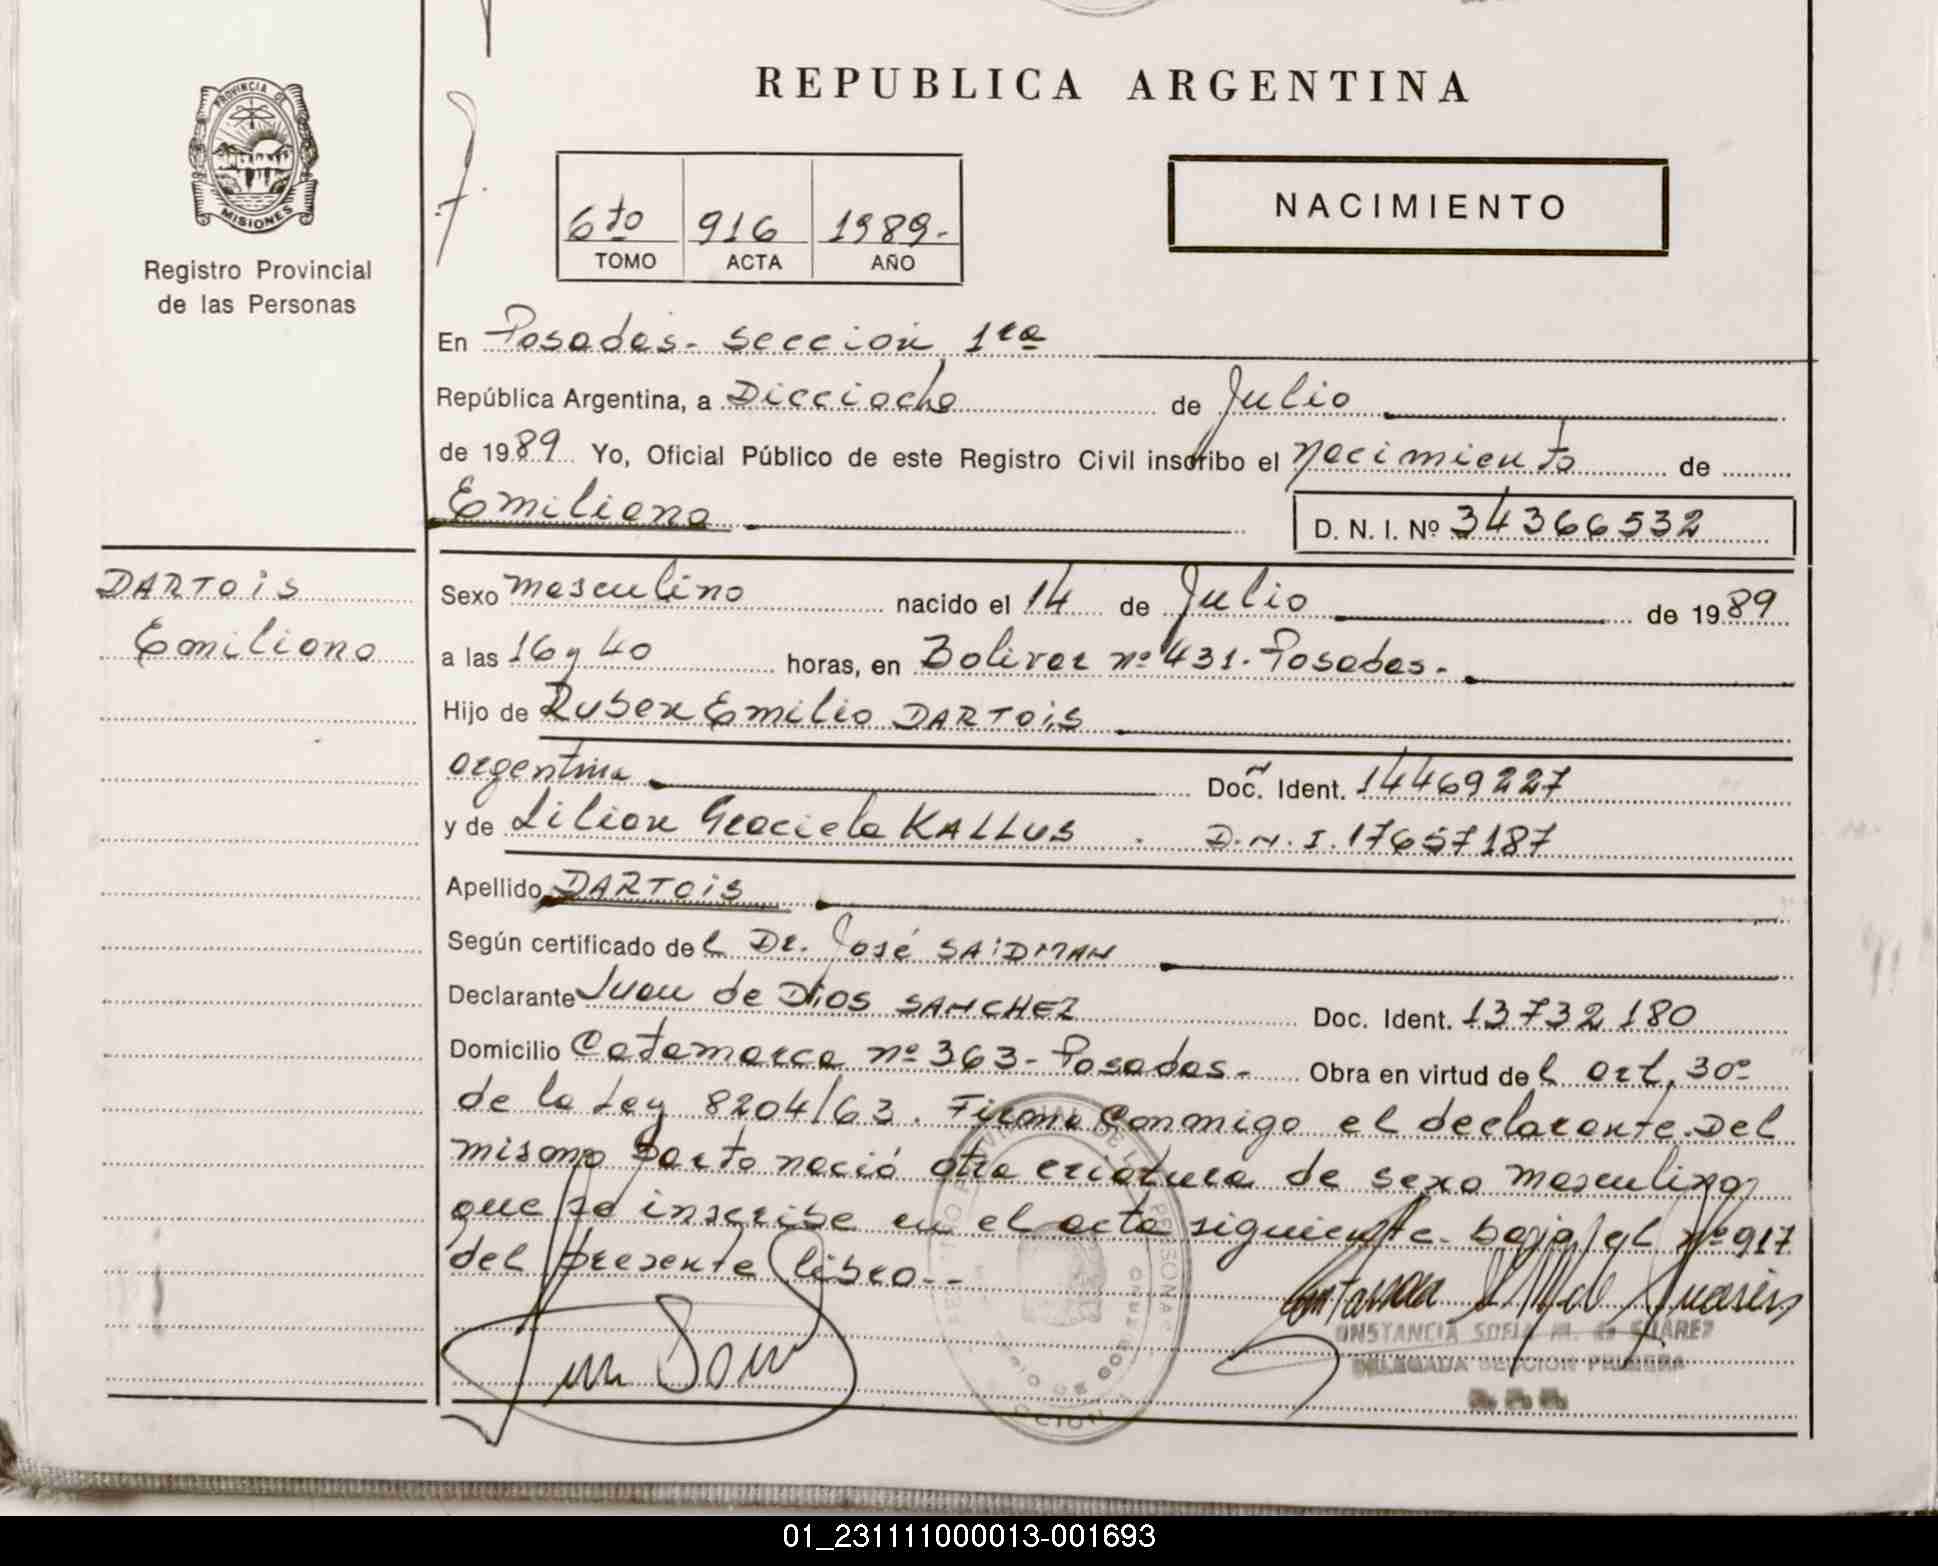 REPUBLICA ARGENTINA
PROVINCIA DE
MISIONES
Registro Provincial
de las Personas
6to 916 1989.-
TOMO ACTA AÑO
NACIMIENTO
En Posadas- Sección 1ra
República Argentina, a Dieciocho de Julio
de 1989 Yo, Oficial Público de este Registro Civil inscribo el nacimiento de
Emiliano
D. N. I. Nº 34366532
DARTOIS
Emiliano
Sexo masculino nacido el 14 de Julio de 1989
a las 16 y 40 horas, en Bolivar nº 431. Posadas.-
Hijo de Ruben Emilio DARTOIS
argentina Doc. Ident. 14469227
y de Lilian Graciela KALLUS . D.N.I. 17657187
Apellido DARTOIS
Según certificado del Dr. José SAIDMAN
Declarante Juan de Dios SANCHEZ Doc. Ident. 13732180
Domicilio Catamarca nº 363- Posadas.- Obra en virtud del art. 30º
de la Ley 8204/63. Firma conmigo el declarante. Del
mismo parto nació otra criatura de sexo masculino
que se inscribe en el acta siguiente bajo el nº 917
del presente libro.--
ONSTANCIA SOFIA M. de SUAREZ
DELEGADA SECCION PRIMERA
01_231111000013-001693